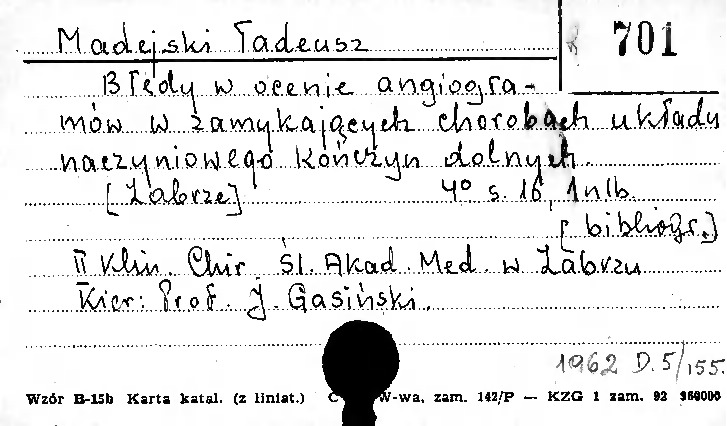 Madejski Tadeusz 701
Błędy w ocenie angiogra-
mów w zamykających chorobach układu
naczyniowego kończyn dolnych.
[Zabrze] 4° s. 16, 1 nlb.
[bibliogr.]
II Klin. Chir. Śl. Akad. Med. w Zabrzu
Kier: Prof. J. Gasiński.
1962 D.5/155.
Wzór B-15b Karta katal. (z liniat.) W-wa, zam. 142/P — KZG 1 zam. 92